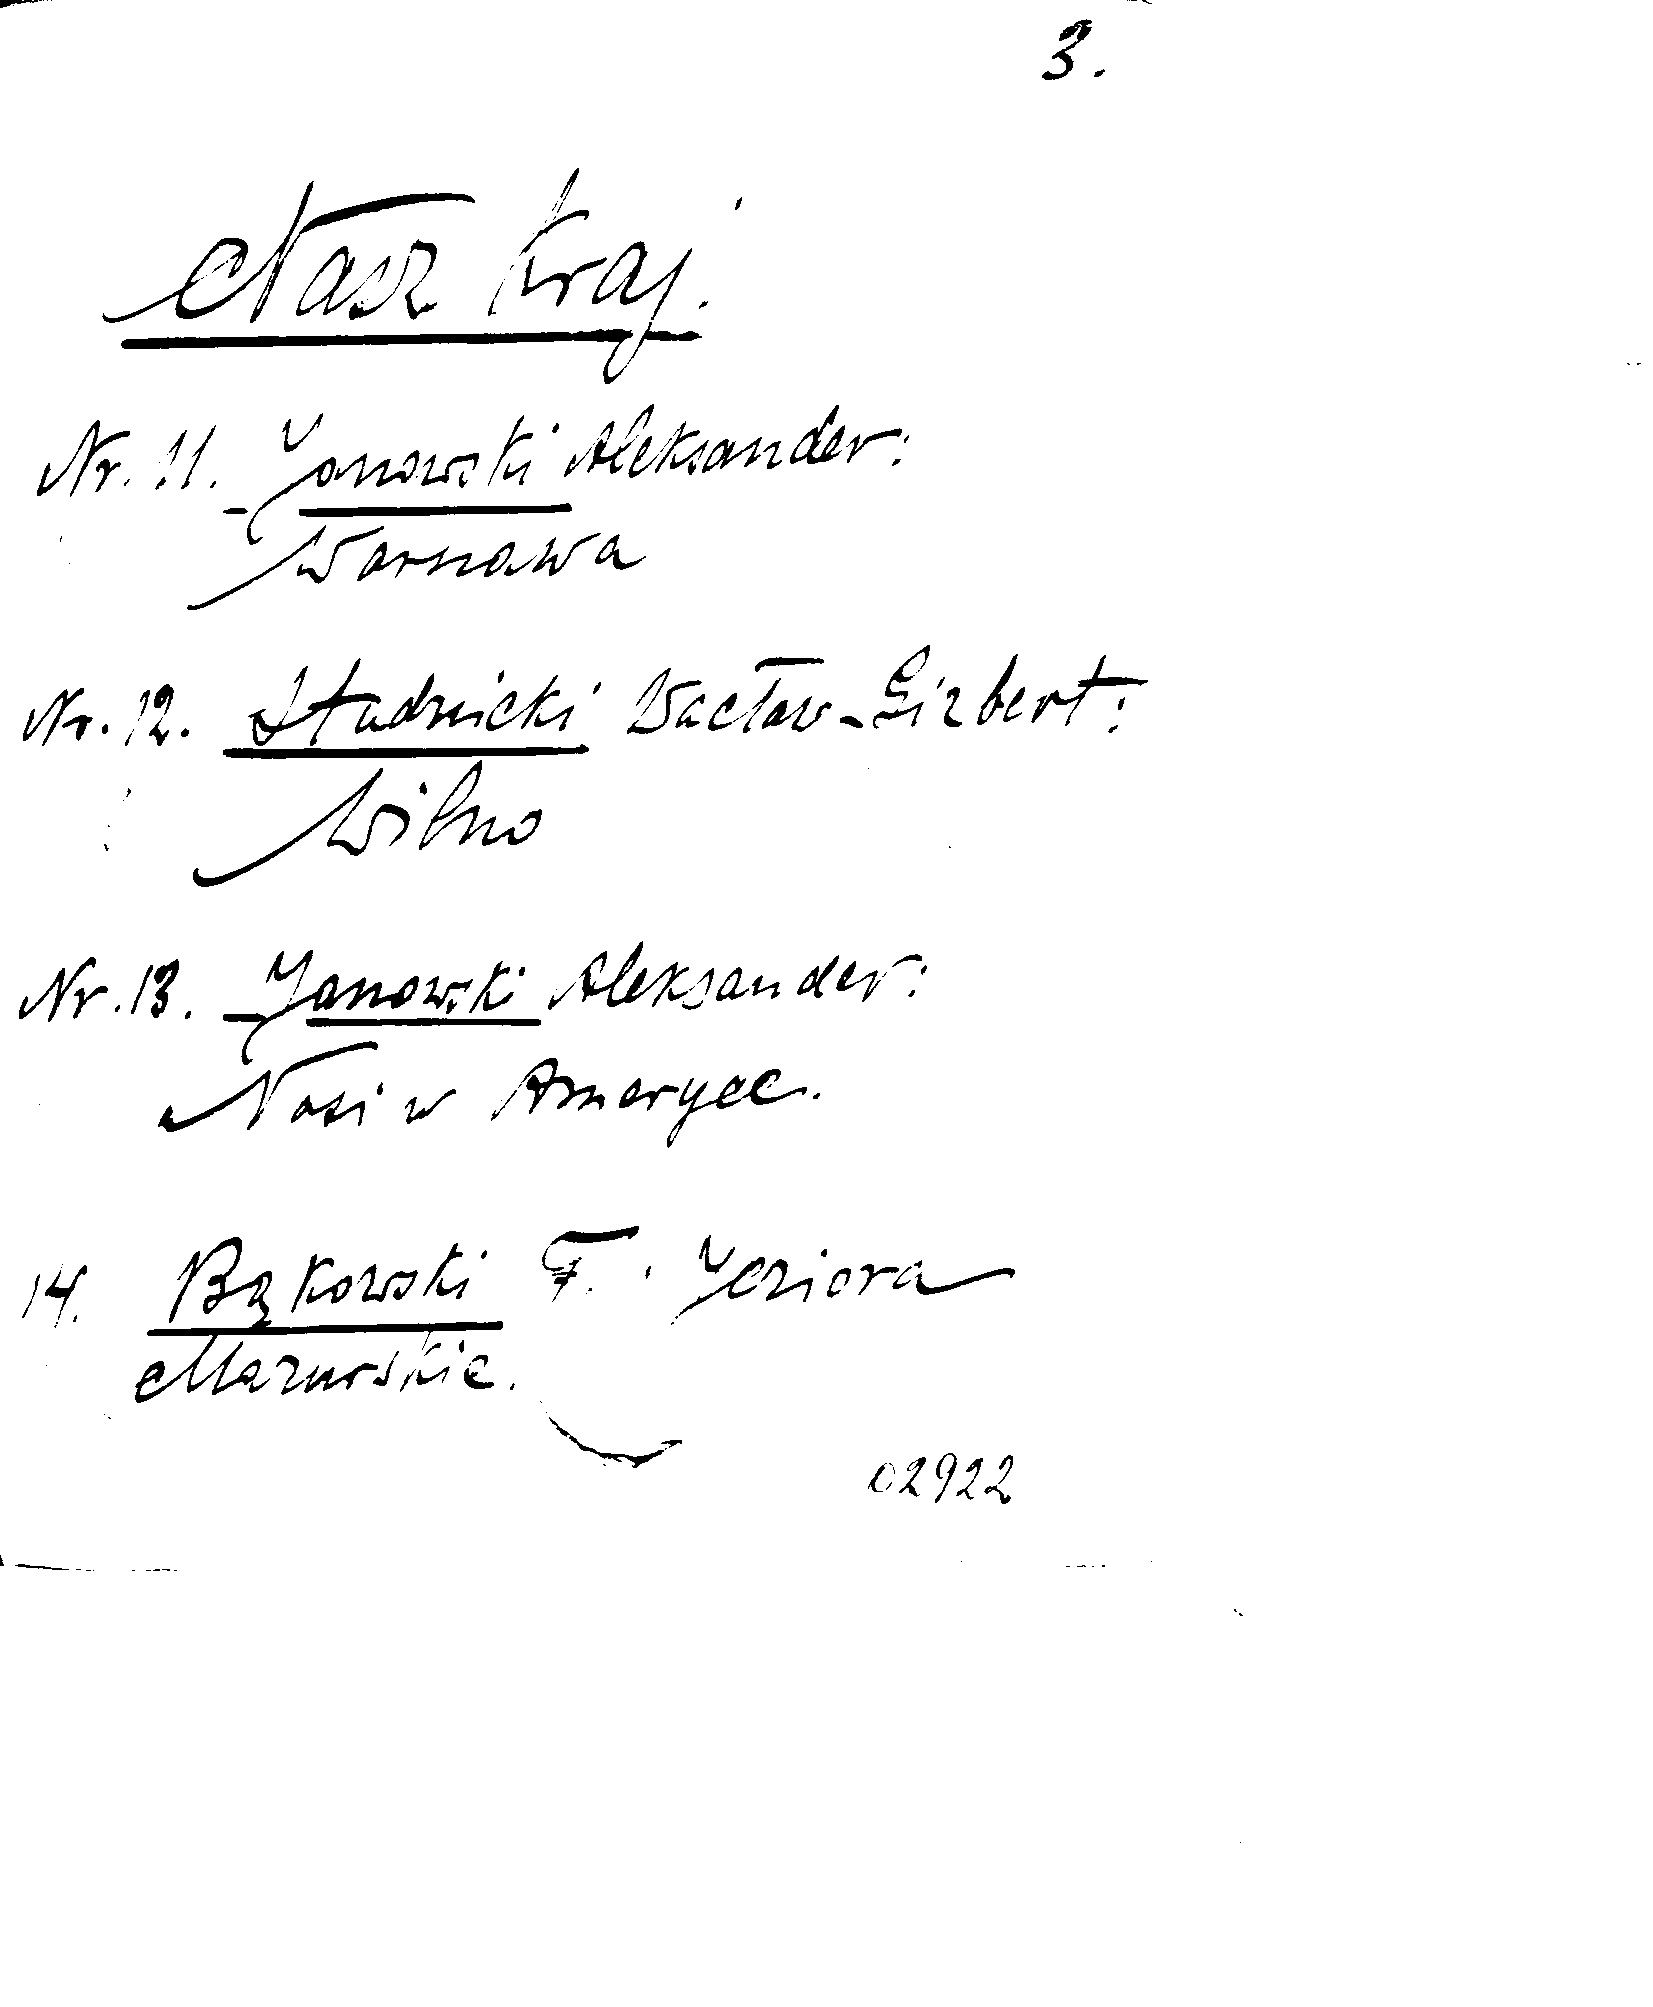 3.
Nasz Kraj.
Nr. 11. Janowski Aleksander:
Warszawa
Nr. 12. Studnicki Wacław-Gizbert:
Wilno
Nr. 13. Janowski Aleksander:
Nasi w Ameryce.
14. Bąkowski F. Jeziora
Mazurskie.
02922